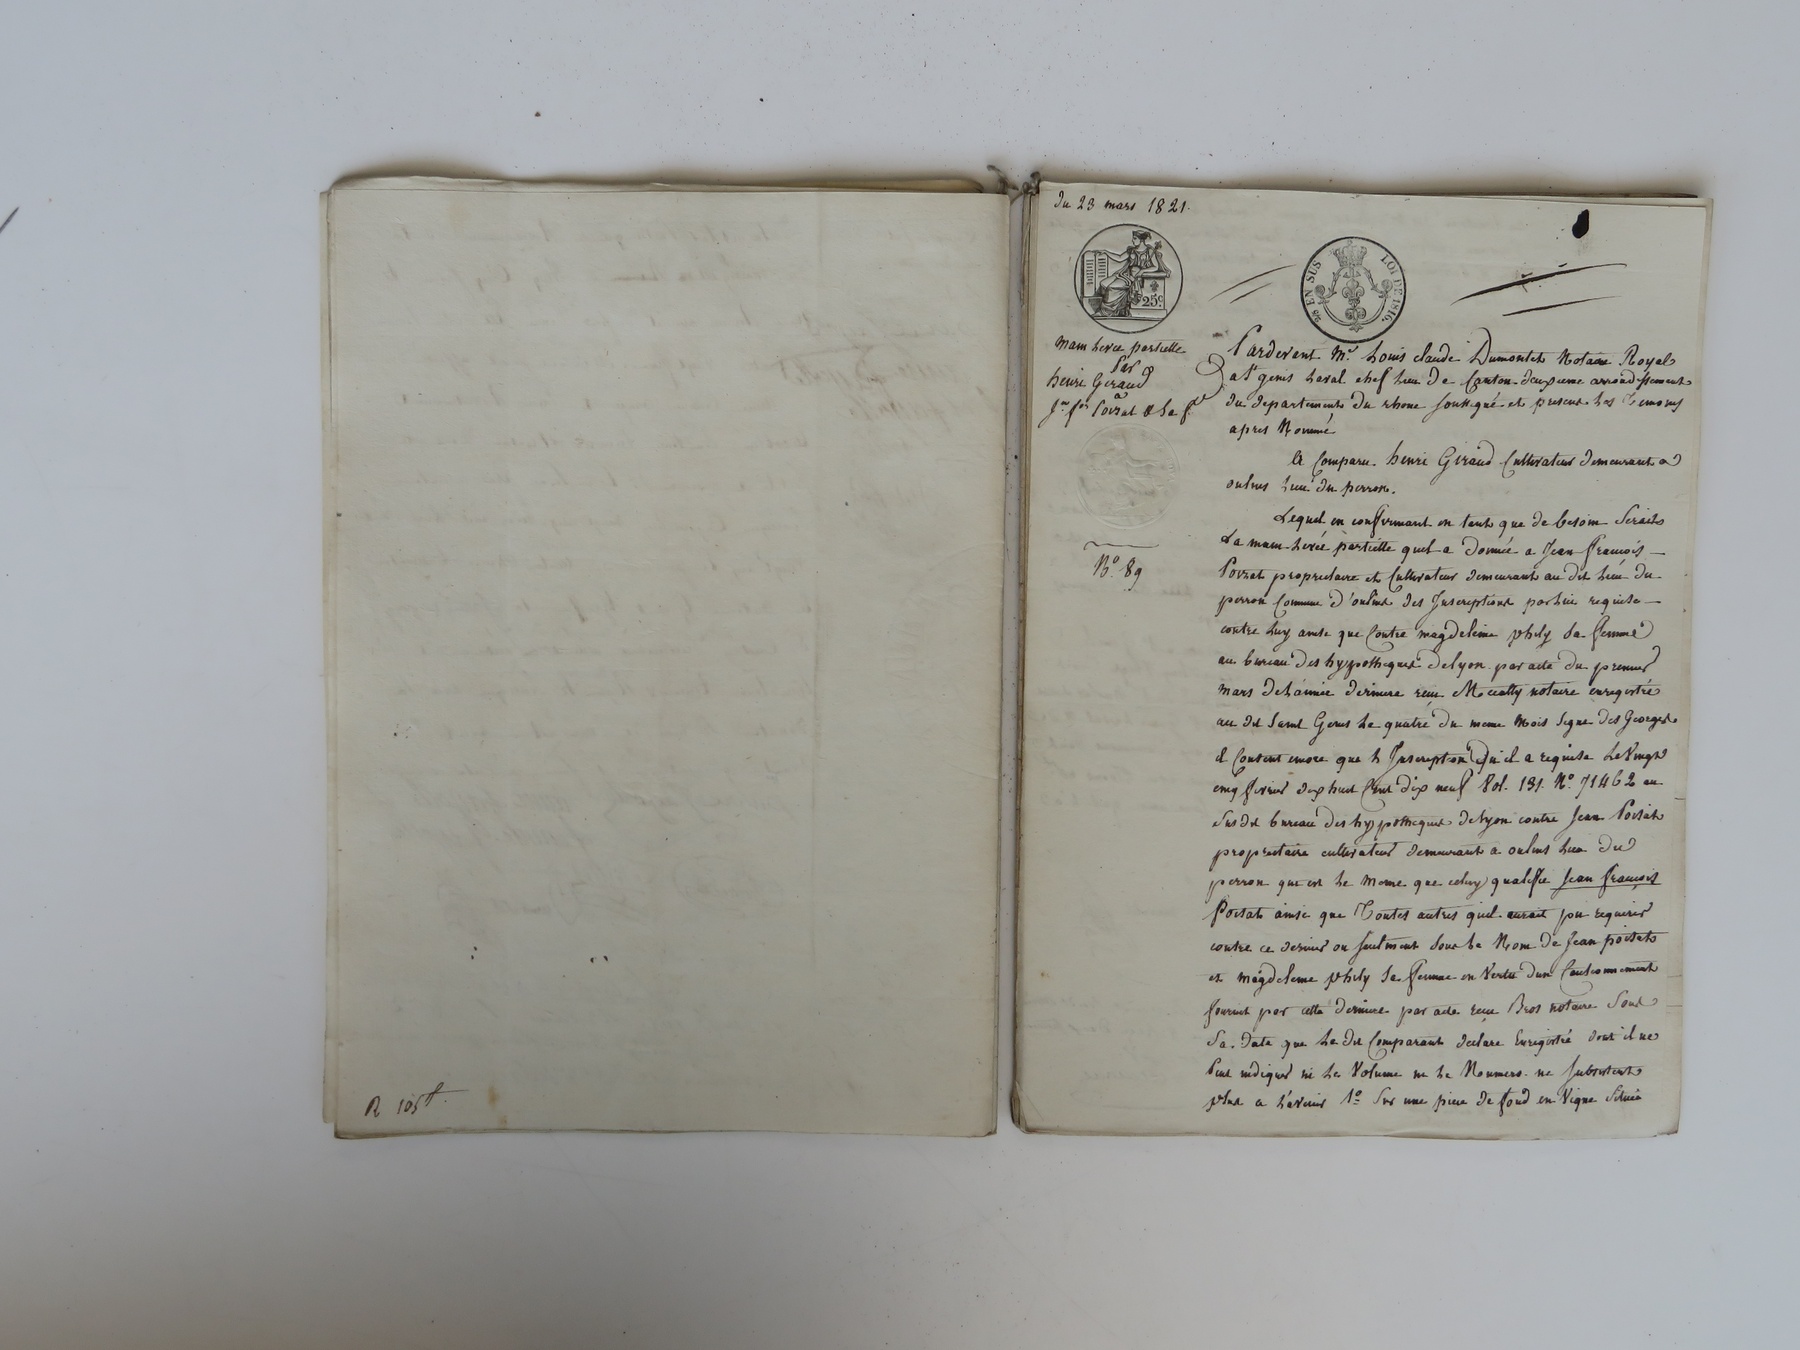 R 105 ff.
du 23 mars 1821.
25c.
25 EN SUS LOI DE 1816.
main levée partielle
Par
henri Geraud
a
Jn. fois Poizat & sa f.
No. 89
Pardevant Me. Louis claude Dumontet Notaire Royal
a St genis Laval chef lieu de Canton deuxieme arrondissement
du departement du rhone soussigné et present les Temoins
apres Nommé
a Comparu henri Geraud Cultivateur demeurant a
oulins lieu du perron.
Lequel en confirmant en tant que de besoin serait
La main Levée partielle quil a donnée a Jean francois
Poizat propriétaire et Cultivateur demeurant au dit lieu du
perron Commune d'oulins des Inscriptions par lui requise
contre luy ainsi que Contre magdeleine phily sa femme
au bureau des hypotheques de lyon par acte du premier
mars de L'année derniere recu Me notaire enregistré
au dit Saint Genis Le quatre du meme Mois signé des Georges
il Consent encore que L'Inscription qu'il a requise Le Vingt
cinq fevrier dix huit Cent dix neuf Vol. 131. No. 71462 au
susdit bureau des hypotheques de lyon contre Jean Poizat
propriétaire cultivateur demeurant a oulins lieu du
perron qui est Le meme que celuy qualifié Jean francois
Poizat ainsi que Toutes autres quil aurait pu requerir
contre ce dernier ou seulment sous le Nom de Jean poizat
et magdeleine phily sa femme en Vertu dun Cautionnement
fournit par cette derniere par acte recu Bros notaire sous
sa date que Le dit Comparant declare Enregistré dont il ne
Peut indiquer ni Le Volume ni Le Noumero ne subsistent
plus a L'avenir 1o. Sur une piece de fond en Vigne Située